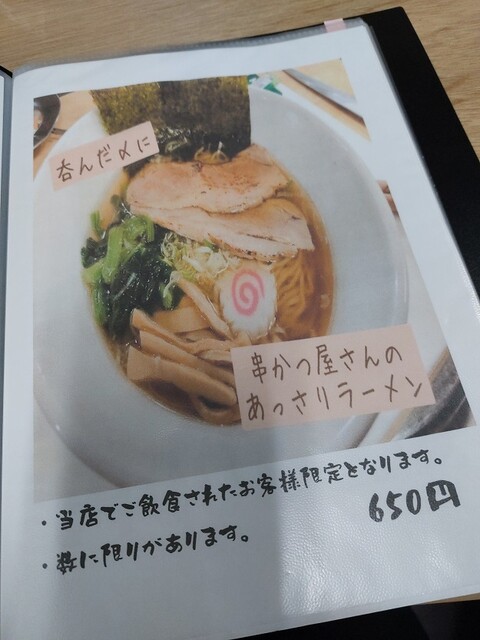 呑んだ〆に
串かつ屋さんの
あっさりラーメン
・当店でご飲食されたお客様限定となります。
650円
・数に限りがあります。